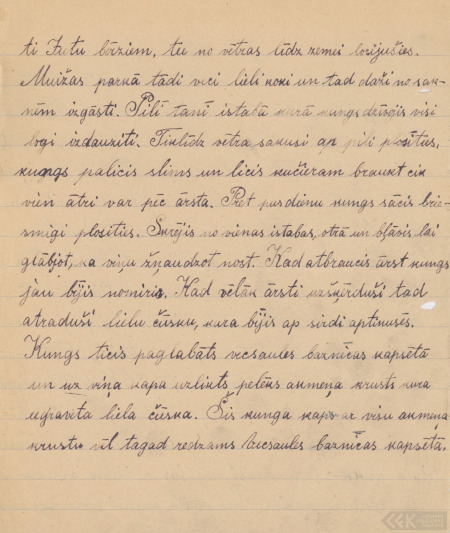 ti Tu tu bērziem, tee no vētras līdz zemei locijušies.
Muižas parkā tādi veci lieli koki un tad daži no sak-
nēm izgāsti. Pilī tanī istabā kurā kungs dzīvojis visi
logi izdauzīti. Tiklīdz vētra sākusi ap pili plosītus,
kungs palicis slims un licis kučieram braukt cik
vien ātri var pēc ārsta. Pret pusdienu kungs sācis brie-
smīgi plosīties. Skrējis no vienas istabas, otrā un bļāvis lai
glābjot, ka viņu žņaudzot nost. Kad atbraucis ārst kungs
jau bijis nomiris. Kad vēlāk ārsti uzšķērduši tad
atraduši lielu čūsku, kura bijis ap sirdi aptinusēs.
Kungs ticis paglabāts vecsaules baznīcas kapsētā
un uz viņa kapa uzlikts pelēks akmeņa krusts kura
iegravēta liela čūska. Šis kunga kaps ar visu akmeņa
krustu vēl tagad redzams Vecsaules baznīcas kapsētā.